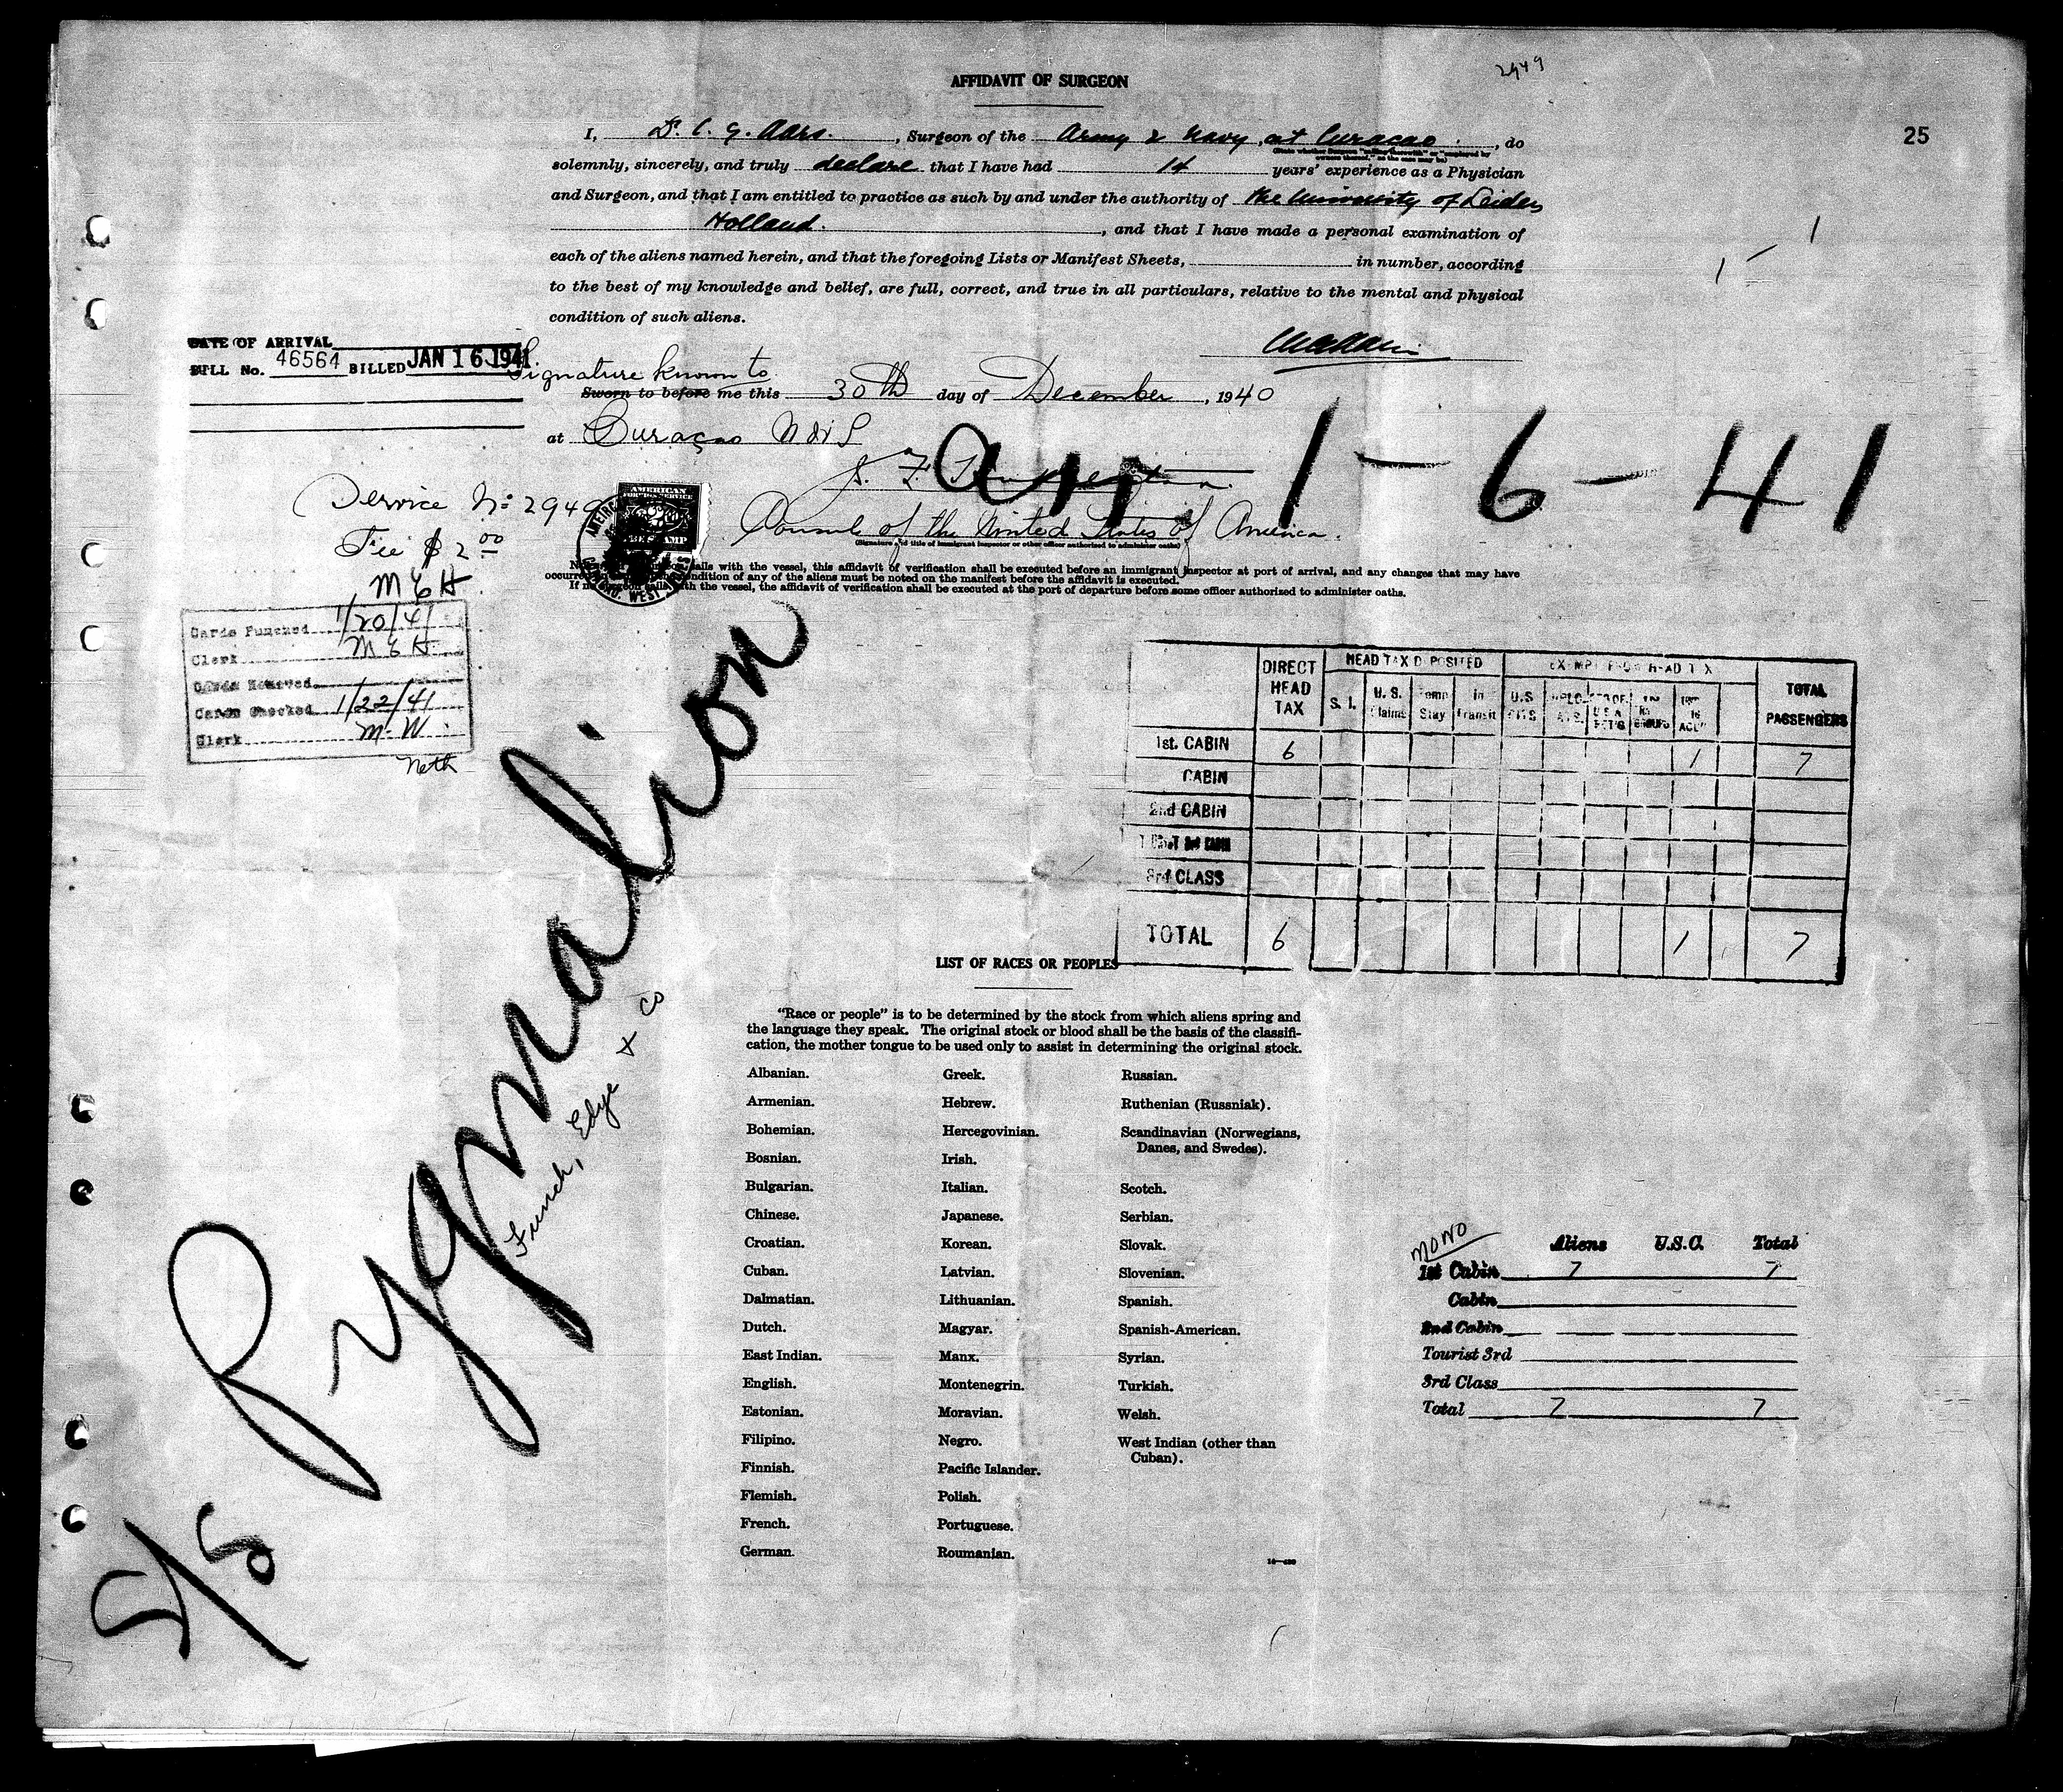 AFFIDAVIT OF SURGEON
2949
25
I, Dr. C. G. Aars. , Surgeon of the Army & Navy, at Curacao , do
(State whether Surgeon "sailing therewith" or "employed by
owners thereof," as the case may be)
solemnly, sincerely, and truly declare that I have had 14 years' experience as a Physician
and Surgeon, and that I am entitled to practice as such by and under the authority of the University of Leiden
Holland. , and that I have made a personal examination of
each of the aliens named herein, and that the foregoing Lists or Manifest Sheets, in number, according
to the best of my knowledge and belief, are full, correct, and true in all particulars, relative to the mental and physical
condition of such aliens.
DATE OF ARRIVAL
BILL No. 46564 BILLED JAN 16 1941.
Signature known to
Sworn to before me this 30th day of December , 1940
at Curaçao N W I
Arr 1-6-41
Service No: 2949
Fee $2 00
MEH
AMERICAN
FOREIGN SERVICE
FEE STAMP
Consul of the United States of America.
(Signature and title of Immigrant Inspector or other officer authorized to administer oaths)
sails with the vessel, this affidavit of verification shall be executed before an immigrant inspector at port of arrival, and any changes that may have
occurred condition of any of the aliens must be noted on the manifest before the affidavit is executed.
If no with the vessel, the affidavit of verification shall be executed at the port of departure before some officer authorized to administer oaths.
Cards Punched 1/20/41
Clerk MEH
Cards Removed
Cards Checked 1/22/41
Clerk M.W.
Neth
DIRECT HEAD TAX
HEAD TAX DEPOSITED
S. I.
U.S. Claims
Temp Stay
In Transit
EXEMPT FROM HEAD TAX
U.S CITS
TOTAL PASSENGERS
1st. CABIN 6 1 7
CABIN
2nd CABIN
3rd CLASS
TOTAL 6 1 7
S/S Pygmalion
Funch, Edye & Co
LIST OF RACES OR PEOPLES
"Race or people" is to be determined by the stock from which aliens spring and
the language they speak. The original stock or blood shall be the basis of the classifi-
cation, the mother tongue to be used only to assist in determining the original stock.
Albanian. Greek. Russian.
Armenian. Hebrew. Ruthenian (Russniak).
Bohemian. Hercegovinian. Scandinavian (Norwegians,
Danes, and Swedes).
Bosnian. Irish.
Bulgarian. Italian. Scotch.
Chinese. Japanese. Serbian.
Croatian. Korean. Slovak.
Cuban. Latvian. Slovenian.
Dalmatian. Lithuanian. Spanish.
Dutch. Magyar. Spanish-American.
East Indian. Manx. Syrian.
English. Montenegrin. Turkish.
Estonian. Moravian. Welsh.
Filipino. Negro. West Indian (other than
Cuban).
Finnish. Pacific Islander.
Flemish. Polish.
French. Portuguese.
German. Roumanian.
MONO
Aliens U.S.C. Total
1st Cabin 7 7
Cabin
2nd Cabin
Tourist 3rd
3rd Class
Total 7 7